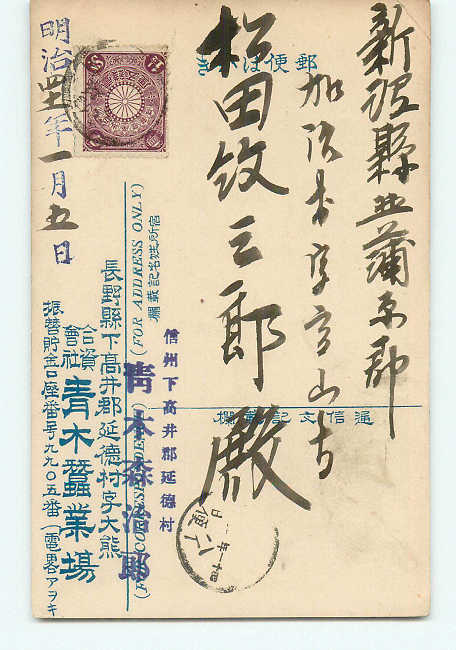 新潟縣北蒲原郡
加治村字宮山古
松田敬三郎殿
郵便はがき
通信文記載欄
信州下高井郡延德村
青木森治郎
(FOR ADDRESS ONLY)
長野縣下高井郡延德村字大熊
合資會社 青木蠶業場
振替貯金口座番号九九〇五番(電畧アヲキ
明治四十一年一月五日